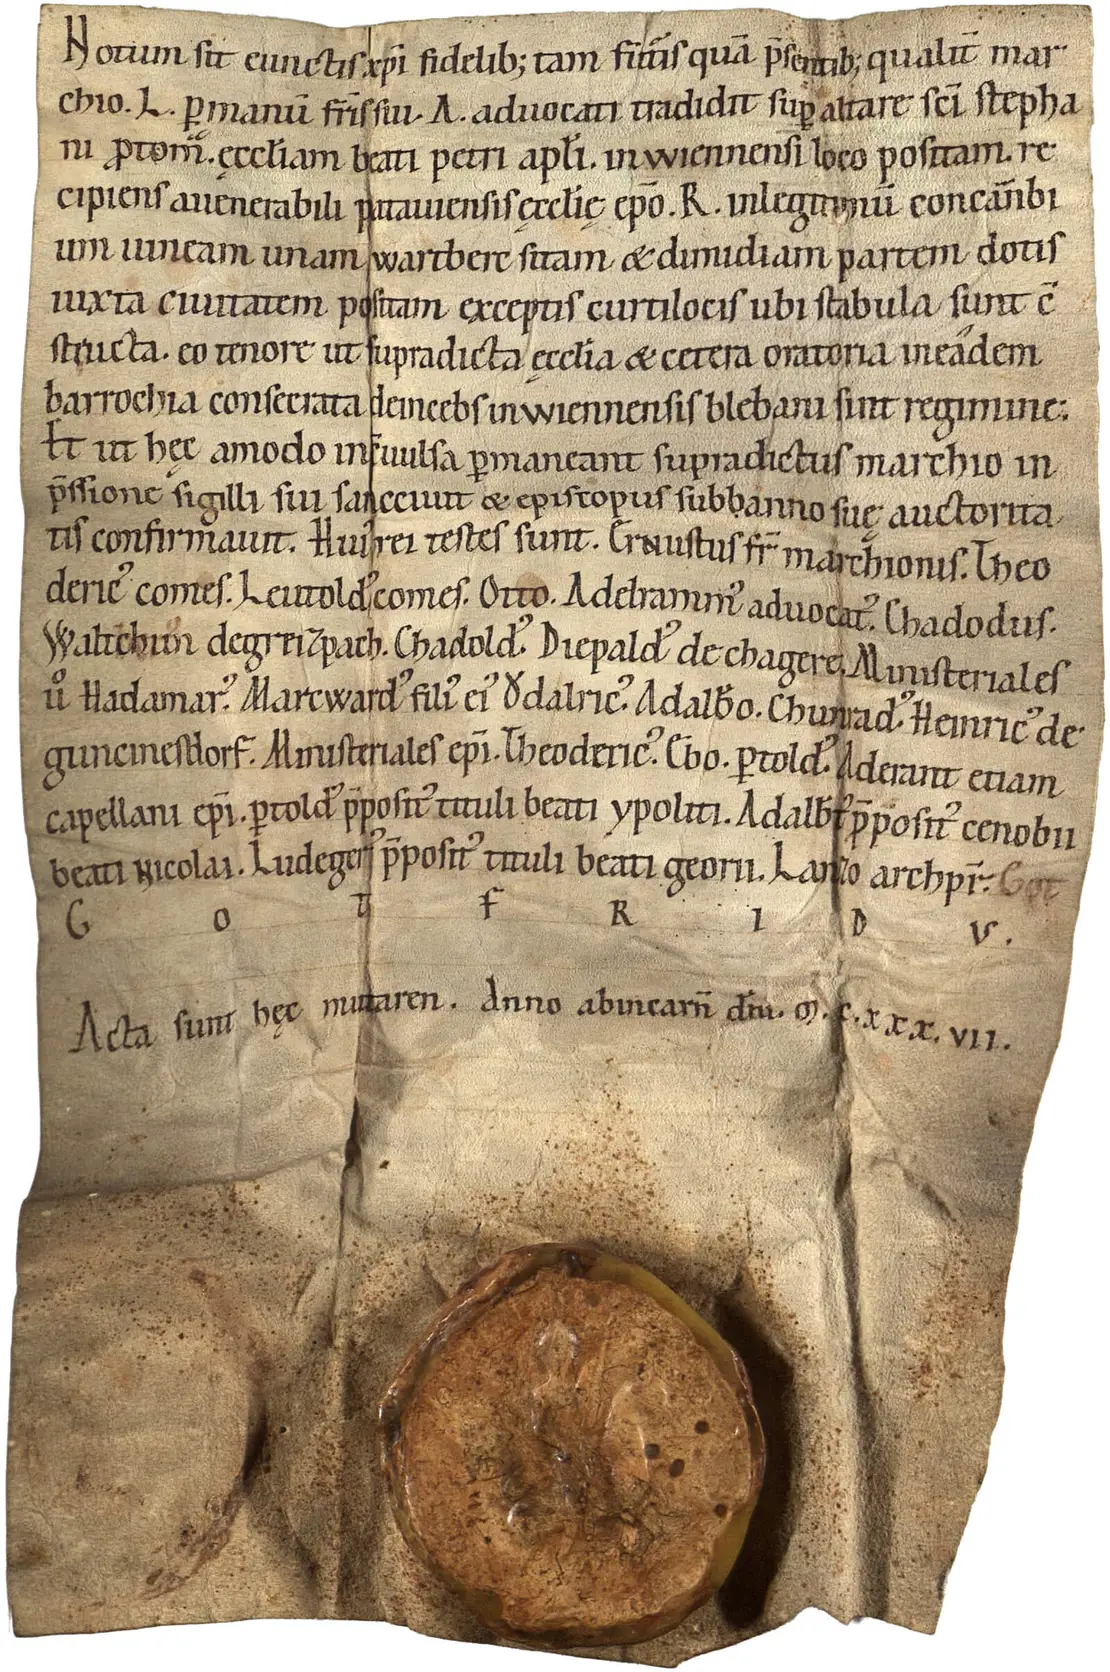 Notum sit cunctis xp̄i fidelib; tam fut̄is quā p̄sentib; qualit̄ mar
chio. L. ꝑmanū fr̄is sui. A. aduocati tradidit suꝑ altare sc̄i stepha
ni ꝓtom̄. ęcclīam beati petri apl̄i. inwiennensi loco positam. re
cipiens auenerabili patauiensis ęcclīę ep̄o. R. inlegitimū concābi
um uineam unam wartberc sitam & dimidiam partem dotis
iuxta ciuitatem positam exceptis curtilocis ubi stabula sunt c̄
structa. eo tenore ut supradicta ęcclīa & cetera oratoria ineādem
barrochia consecrata deincebs inwiennensis blebani sint regimine:
Et ut hęc amodo inſuulsa ꝑmaneant supradictus marchio in
p̄ssione sigilli sui sanciuit & episcopus subbanno suę auctorita
tis confirmauit. Huiꝰ rei testes sunt. Ernustus fr̄ marchionis. Theo
dericꝰ comes. Leutoldꝰ comes. Otto. Adelrammꝰ aduocatꝰ. Chadodus.
Waltchun degreizpach. Chadoldꝰ. Diepaldꝰ de chagere. Ministeriales
ů Hadamarꝰ. Marcwardꝰ filiꝰ eiꝰ Ǒdalricꝰ. Adalb̄o. Chunradꝰ. Heinricꝰ de
guncinesdorf. Ministeriales ep̄i. Theodericꝰ. Ebo. ꝑtoldꝰ. Aderant etiam
capellani ep̄i. ꝑtoldꝰ p̄positꝰ tituli beati ypoliti. Adalb̄tꝰ p̄positꝰ cenobii
beati nicolai. Ludegerꝰ p̄positꝰ tituli beati georii. Lanzo archpr̄. Got
G O T F R I D V.
Acta sunt hęc mutaren. Anno abincarn̄ dn̄i. M. C. xxx. VII.